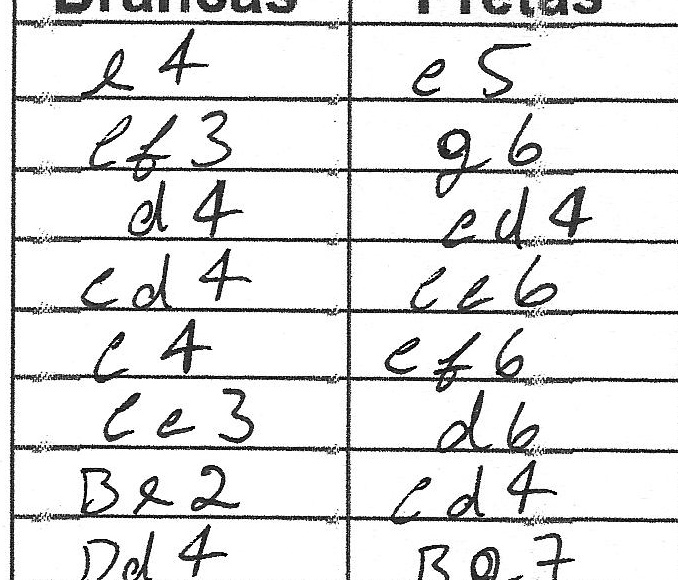 Brancas Pretas
e4 c5
Cf3 g6
d4 cd4
Cd4 Cc6
c4 Cf6
Cc3 d6
Be2 Cd4
Dd4 Bg7